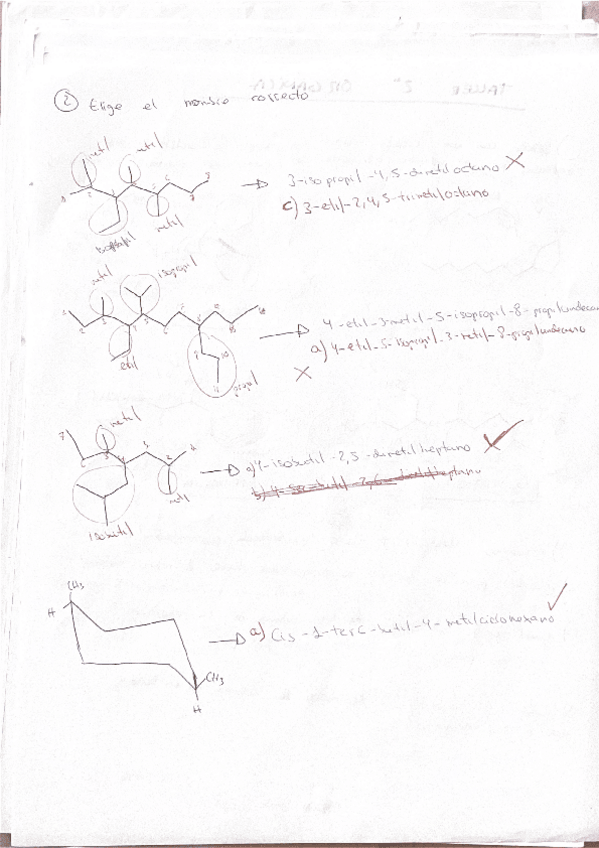 ② Elige el nombre correcto
metil
metil
3-isopropil-4,5-dimetiloctano X
c) 3-etil-2,4,5-trimetiloctano
isopropil
metil
metil
isopropil
4-etil-3-metil-5-isopropil-8-propilundecano
a) 4-etil-5-isopropil-3-metil-8-propilundecano
etil
propil
X
metil
a) 4-isobutil-2,5-dimetilheptano
metil
isobutil
CH3
H
a) Cis-1-terc-butil-4-metilciclohexano
CH3
H